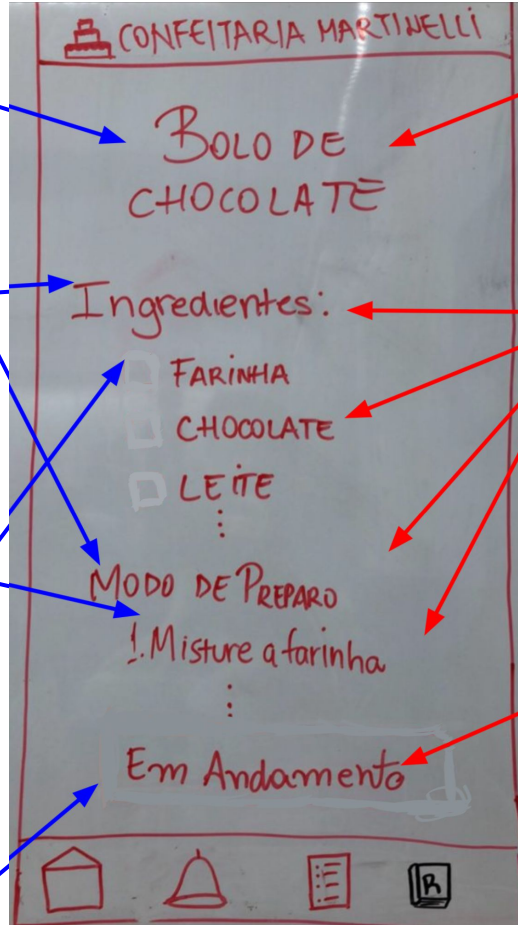 CONFEITARIA MARTINELLI
BOLO DE
CHOCOLATE
Ingredientes:
FARINHA
CHOCOLATE
LEITE
⋮
MODO DE PREPARO
1. Misture a farinha
⋮
Em Andamento
R